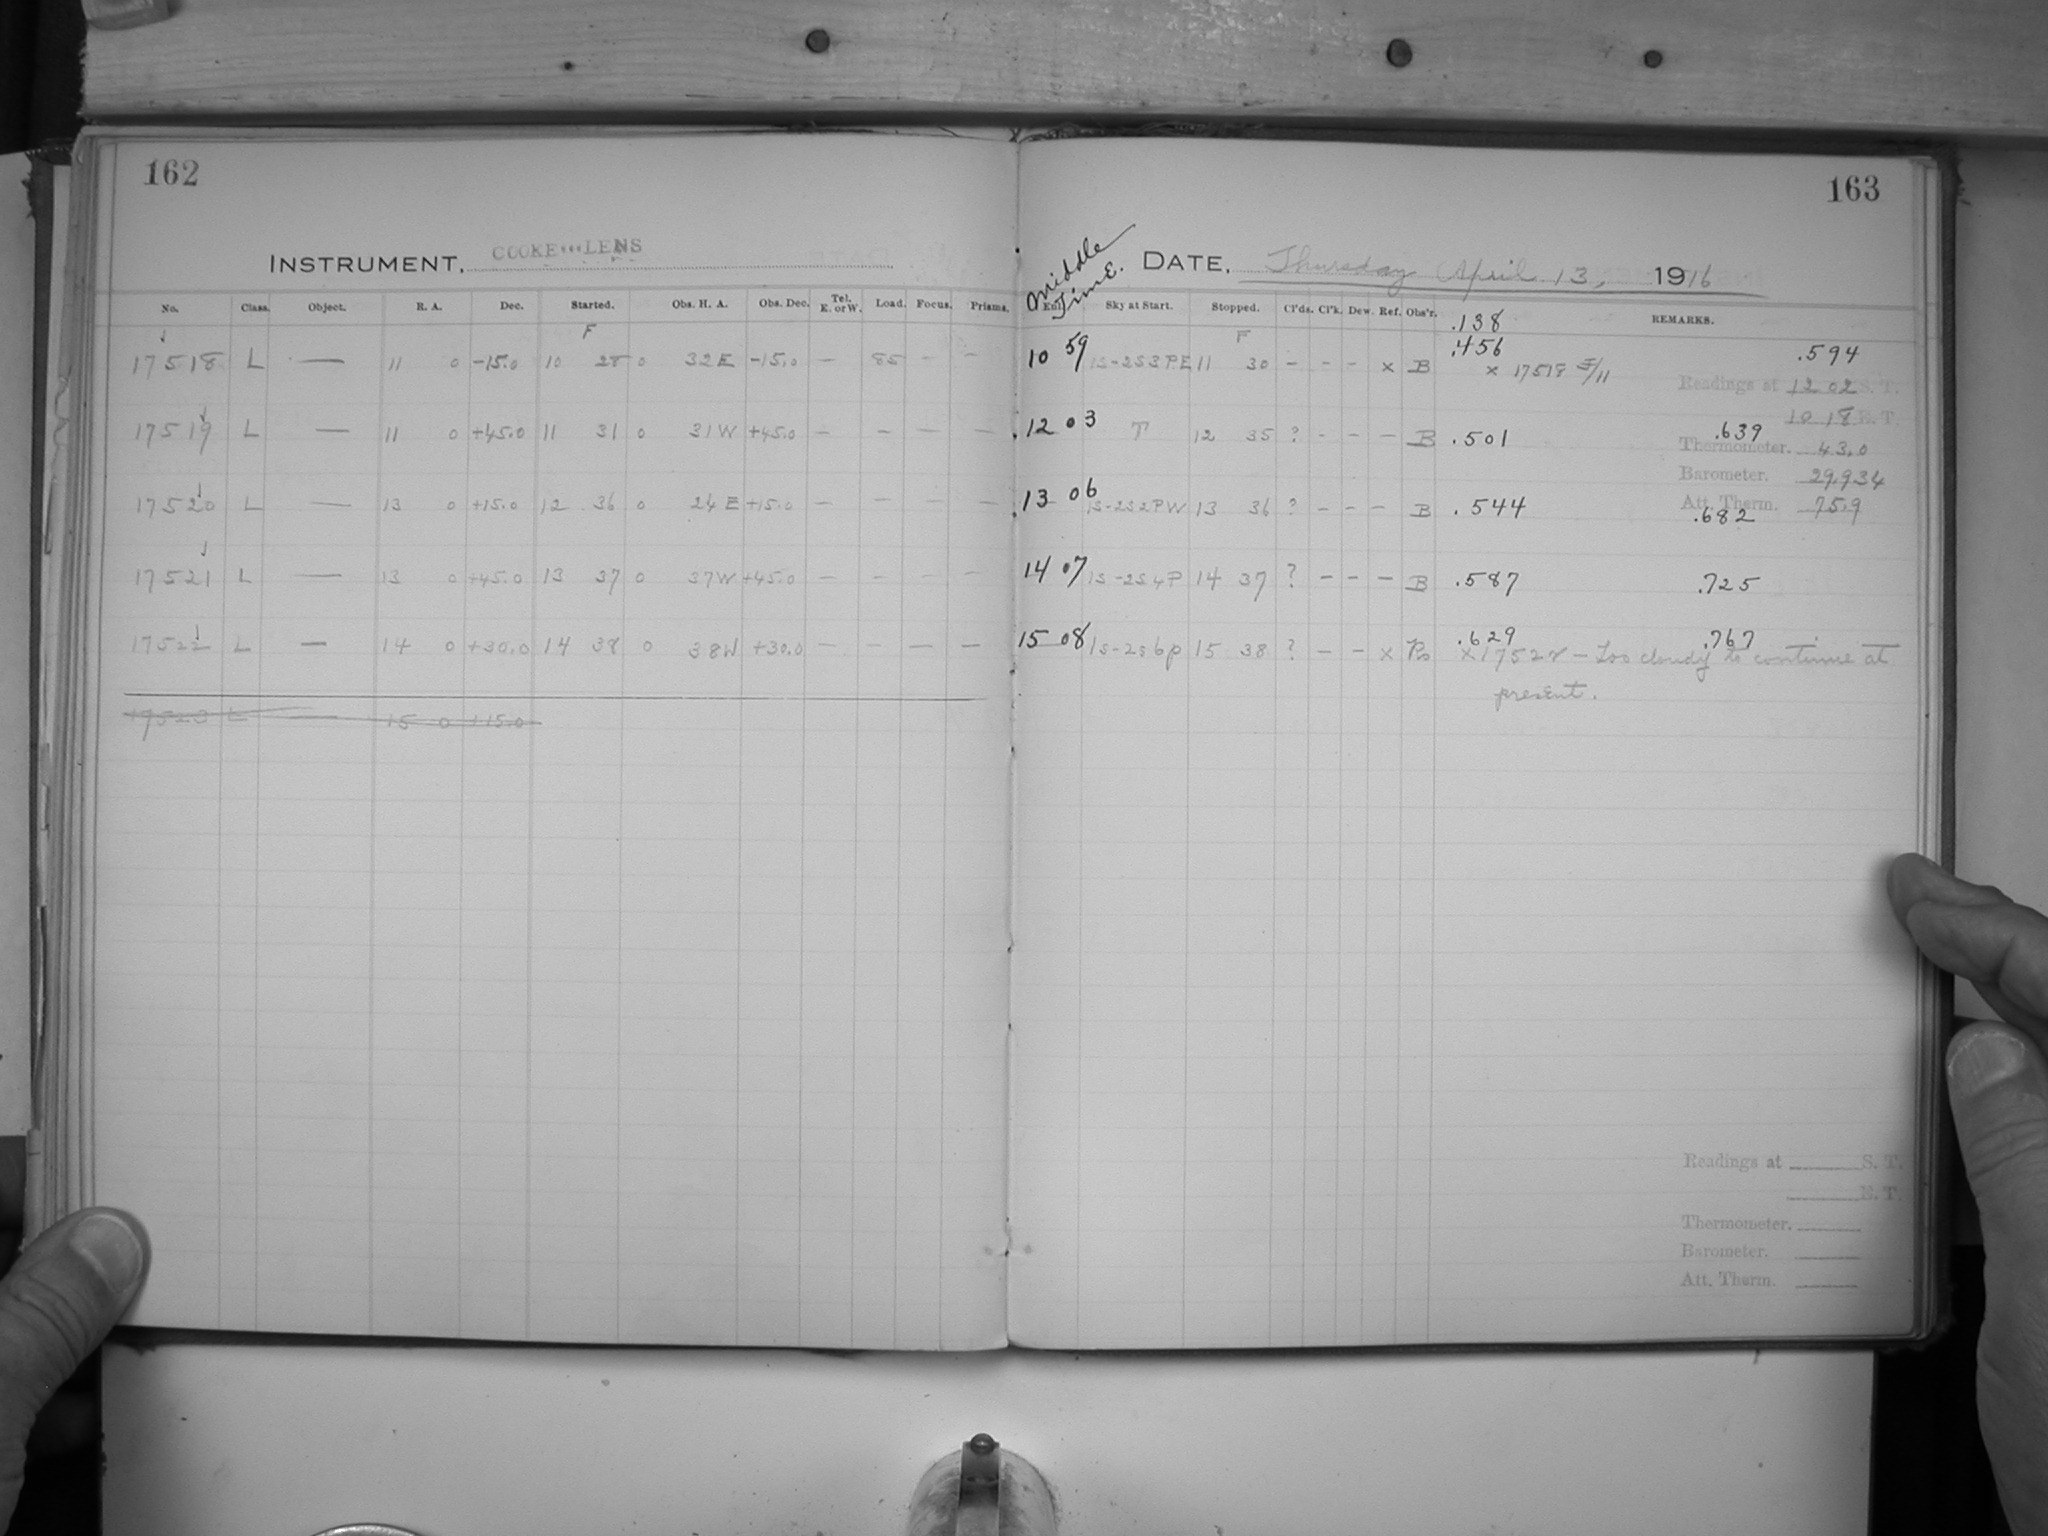 162
INSTRUMENT, COOKE LENS
No. Class. Object. R. A. Dec. Started. Obs. H. A. Obs. Dec. Tel. E. or W. Load. Focus. Prisms.
F
17518 L — 11 0 -15.0 10 28 0 32 E -15.0 — 85 - -
17519 L — 11 0 +45.0 11 31 0 31 W +45.0 — — — —
17520 L — 13 0 +15.0 12 36 0 24 E +15.0 — — — —
17521 L — 13 0 +45.0 13 37 0 37 W +45.0 — — — —
17522 L — 14 0 +30.0 14 38 0 38 W +30.0 — — — —
17523 L — 15 0 +15.0
163
Middle Time.
DATE, Thursday April 13, 1916
Sky at Start. Stopped. Cl'ds. Cl'k. Dew. Ref. Obs'r. REMARKS.
F .138
10 59 1s-2s3PE 11 30 - - - x B .456 .594
x 17518 5/11
Readings at 12 02 S. T.
10 18 E. T.
12 03 T 12 35 ? - - - B .501 .639
Thermometer. 43.0
Barometer. 29.934
13 06 1s-2s2PW 13 36 ? - - - B .544 .682
Att. Therm. 75.9
14 07 1s-2s4P 14 37 ? - - - B .587 .725
15 08 1s-2s6p 15 38 ? - - x B .629 .767
x 17522 — Too cloudy to continue at
present.
Readings at S. T.
E. T.
Thermometer.
Barometer.
Att. Therm.